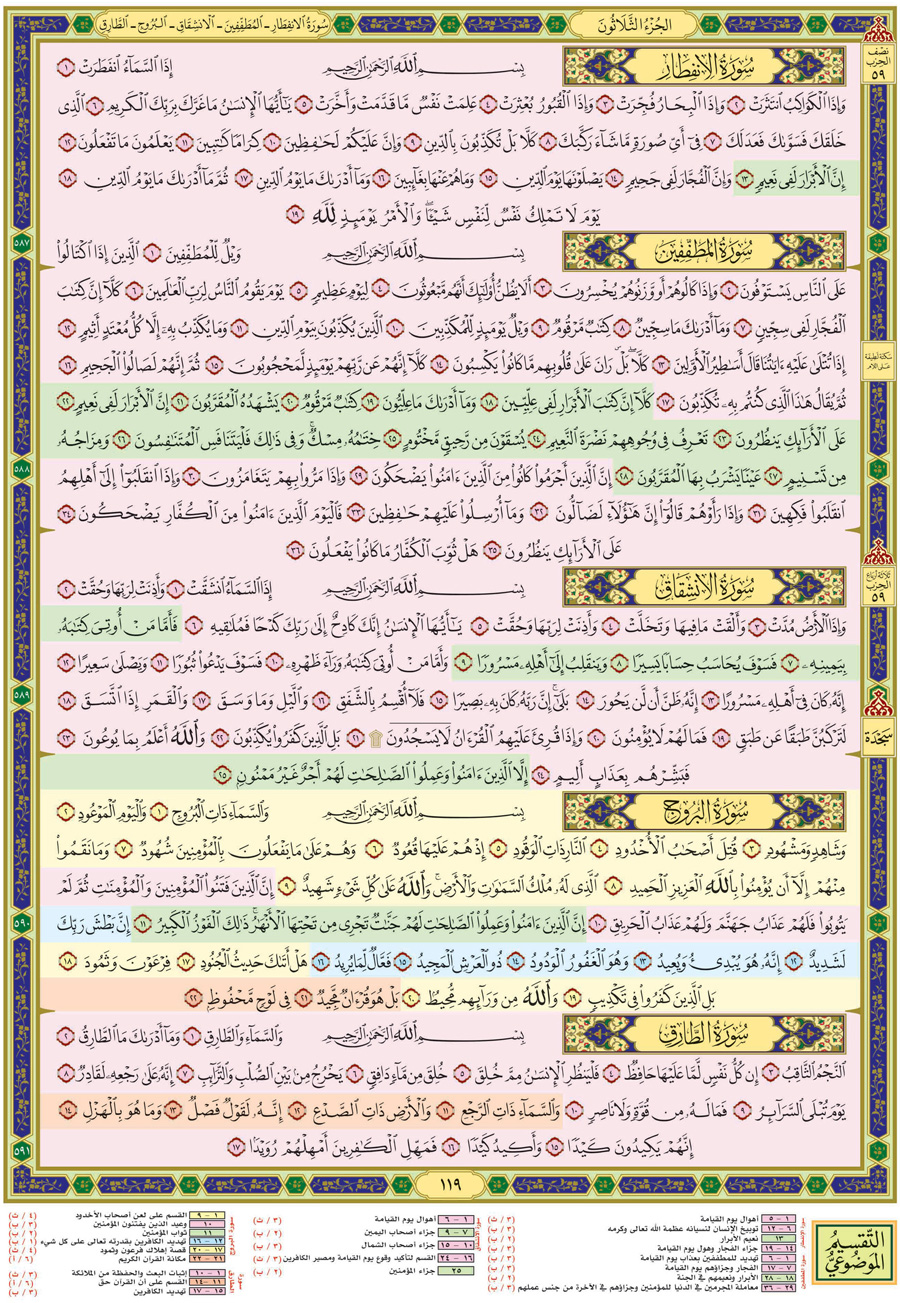 الجزء الثلاثون
سورة الانفطار - المطففين - الانشقاق - البروج - الطارق
نصف الحزب ٥٩
سُورَةُ الانفِطَارِ
بِسْمِ ٱللَّهِ ٱلرَّحْمَٰنِ ٱلرَّحِيمِ إِذَا ٱلسَّمَآءُ ٱنفَطَرَتْ ١
وَإِذَا ٱلْكَوَاكِبُ ٱنتَثَرَتْ ٢ وَإِذَا ٱلْبِحَارُ فُجِّرَتْ ٣ وَإِذَا ٱلْقُبُورُ بُعْثِرَتْ ٤ عَلِمَتْ نَفْسٌ مَّا قَدَّمَتْ وَأَخَّرَتْ ٥ يَٰٓأَيُّهَا ٱلْإِنسَٰنُ مَا غَرَّكَ بِرَبِّكَ ٱلْكَرِيمِ ٦ ٱلَّذِى
خَلَقَكَ فَسَوَّىٰكَ فَعَدَلَكَ ٧ فِىٓ أَىِّ صُورَةٍ مَّا شَآءَ رَكَّبَكَ ٨ كَلَّا بَلْ تُكَذِّبُونَ بِٱلدِّينِ ٩ وَإِنَّ عَلَيْكُمْ لَحَٰفِظِينَ ١٠ كِرَامًا كَٰتِبِينَ ١١ يَعْلَمُونَ مَا تَفْعَلُونَ ١٢
إِنَّ ٱلْأَبْرَارَ لَفِى نَعِيمٍ ١٣ وَإِنَّ ٱلْفُجَّارَ لَفِى جَحِيمٍ ١٤ يَصْلَوْنَهَا يَوْمَ ٱلدِّينِ ١٥ وَمَا هُمْ عَنْهَا بِغَآئِبِينَ ١٦ وَمَآ أَدْرَىٰكَ مَا يَوْمُ ٱلدِّينِ ١٧ ثُمَّ مَآ أَدْرَىٰكَ مَا يَوْمُ ٱلدِّينِ ١٨
يَوْمَ لَا تَمْلِكُ نَفْسٌ لِّنَفْسٍ شَيْـًٔا وَٱلْأَمْرُ يَوْمَئِذٍ لِّلَّهِ ١٩
٥٨٧
سُورَةُ المُطَفِّفِينَ
بِسْمِ ٱللَّهِ ٱلرَّحْمَٰنِ ٱلرَّحِيمِ وَيْلٌ لِّلْمُطَفِّفِينَ ١ ٱلَّذِينَ إِذَا ٱكْتَالُوا۟
عَلَى ٱلنَّاسِ يَسْتَوْفُونَ ٢ وَإِذَا كَالُوهُمْ أَو وَّزَنُوهُمْ يُخْسِرُونَ ٣ أَلَا يَظُنُّ أُو۟لَٰٓئِكَ أَنَّهُم مَّبْعُوثُونَ ٤ لِيَوْمٍ عَظِيمٍ ٥ يَوْمَ يَقُومُ ٱلنَّاسُ لِرَبِّ ٱلْعَٰلَمِينَ ٦ كَلَّآ إِنَّ كِتَٰبَ
ٱلْفُجَّارِ لَفِى سِجِّينٍ ٧ وَمَآ أَدْرَىٰكَ مَا سِجِّينٌ ٨ كِتَٰبٌ مَّرْقُومٌ ٩ وَيْلٌ يَوْمَئِذٍ لِّلْمُكَذِّبِينَ ١٠ ٱلَّذِينَ يُكَذِّبُونَ بِيَوْمِ ٱلدِّينِ ١١ وَمَا يُكَذِّبُ بِهِۦٓ إِلَّا كُلُّ مُعْتَدٍ أَثِيمٍ ١٢
إِذَا تُتْلَىٰ عَلَيْهِ ءَايَٰتُنَا قَالَ أَسَٰطِيرُ ٱلْأَوَّلِينَ ١٣ كَلَّا بَلْ رَانَ عَلَىٰ قُلُوبِهِم مَّا كَانُوا۟ يَكْسِبُونَ ١٤ كَلَّآ إِنَّهُمْ عَن رَّبِّهِمْ يَوْمَئِذٍ لَّمَحْجُوبُونَ ١٥ ثُمَّ إِنَّهُمْ لَصَالُوا۟ ٱلْجَحِيمِ ١٦
سكتة لطيفة على اللام
ثُمَّ يُقَالُ هَٰذَا ٱلَّذِى كُنتُم بِهِۦ تُكَذِّبُونَ ١٧ كَلَّآ إِنَّ كِتَٰبَ ٱلْأَبْرَارِ لَفِى عِلِّيِّينَ ١٨ وَمَآ أَدْرَىٰكَ مَا عِلِّيُّونَ ١٩ كِتَٰبٌ مَّرْقُومٌ ٢٠ يَشْهَدُهُ ٱلْمُقَرَّبُونَ ٢١ إِنَّ ٱلْأَبْرَارَ لَفِى نَعِيمٍ ٢٢
عَلَى ٱلْأَرَآئِكِ يَنظُرُونَ ٢٣ تَعْرِفُ فِى وُجُوهِهِمْ نَضْرَةَ ٱلنَّعِيمِ ٢٤ يُسْقَوْنَ مِن رَّحِيقٍ مَّخْتُومٍ ٢٥ خِتَٰمُهُۥ مِسْكٌ وَفِى ذَٰلِكَ فَلْيَتَنَافَسِ ٱلْمُتَنَٰفِسُونَ ٢٦ وَمِزَاجُهُۥ
٥٨٨
مِن تَسْنِيمٍ ٢٧ عَيْنًا يَشْرَبُ بِهَا ٱلْمُقَرَّبُونَ ٢٨ إِنَّ ٱلَّذِينَ أَجْرَمُوا۟ كَانُوا۟ مِنَ ٱلَّذِينَ ءَامَنُوا۟ يَضْحَكُونَ ٢٩ وَإِذَا مَرُّوا۟ بِهِمْ يَتَغَامَزُونَ ٣٠ وَإِذَا ٱنقَلَبُوٓا۟ إِلَىٰٓ أَهْلِهِمُ
ٱنقَلَبُوا۟ فَكِهِينَ ٣١ وَإِذَا رَأَوْهُمْ قَالُوٓا۟ إِنَّ هَٰٓؤُلَآءِ لَضَآلُّونَ ٣٢ وَمَآ أُرْسِلُوا۟ عَلَيْهِمْ حَٰفِظِينَ ٣٣ فَٱلْيَوْمَ ٱلَّذِينَ ءَامَنُوا۟ مِنَ ٱلْكُفَّارِ يَضْحَكُونَ ٣٤
عَلَى ٱلْأَرَآئِكِ يَنظُرُونَ ٣٥ هَلْ ثُوِّبَ ٱلْكُفَّارُ مَا كَانُوا۟ يَفْعَلُونَ ٣٦
ثلاثة أرباع الحزب ٥٩
سُورَةُ الانشِقَاقِ
بِسْمِ ٱللَّهِ ٱلرَّحْمَٰنِ ٱلرَّحِيمِ إِذَا ٱلسَّمَآءُ ٱنشَقَّتْ ١ وَأَذِنَتْ لِرَبِّهَا وَحُقَّتْ ٢
وَإِذَا ٱلْأَرْضُ مُدَّتْ ٣ وَأَلْقَتْ مَا فِيهَا وَتَخَلَّتْ ٤ وَأَذِنَتْ لِرَبِّهَا وَحُقَّتْ ٥ يَٰٓأَيُّهَا ٱلْإِنسَٰنُ إِنَّكَ كَادِحٌ إِلَىٰ رَبِّكَ كَدْحًا فَمُلَٰقِيهِ ٦ فَأَمَّا مَنْ أُوتِىَ كِتَٰبَهُۥ
بِيَمِينِهِۦ ٧ فَسَوْفَ يُحَاسَبُ حِسَابًا يَسِيرًا ٨ وَيَنقَلِبُ إِلَىٰٓ أَهْلِهِۦ مَسْرُورًا ٩ وَأَمَّا مَنْ أُوتِىَ كِتَٰبَهُۥ وَرَآءَ ظَهْرِهِۦ ١٠ فَسَوْفَ يَدْعُوا۟ ثُبُورًا ١١ وَيَصْلَىٰ سَعِيرًا ١٢
٥٨٩
إِنَّهُۥ كَانَ فِىٓ أَهْلِهِۦ مَسْرُورًا ١٣ إِنَّهُۥ ظَنَّ أَن لَّن يَحُورَ ١٤ بَلَىٰٓ إِنَّ رَبَّهُۥ كَانَ بِهِۦ بَصِيرًا ١٥ فَلَآ أُقْسِمُ بِٱلشَّفَقِ ١٦ وَٱلَّيْلِ وَمَا وَسَقَ ١٧ وَٱلْقَمَرِ إِذَا ٱتَّسَقَ ١٨
سجدة
لَتَرْكَبُنَّ طَبَقًا عَن طَبَقٍ ١٩ فَمَا لَهُمْ لَا يُؤْمِنُونَ ٢٠ وَإِذَا قُرِئَ عَلَيْهِمُ ٱلْقُرْءَانُ لَا يَسْجُدُونَ ۩ ٢١ بَلِ ٱلَّذِينَ كَفَرُوا۟ يُكَذِّبُونَ ٢٢ وَٱللَّهُ أَعْلَمُ بِمَا يُوعُونَ ٢٣
فَبَشِّرْهُم بِعَذَابٍ أَلِيمٍ ٢٤ إِلَّا ٱلَّذِينَ ءَامَنُوا۟ وَعَمِلُوا۟ ٱلصَّٰلِحَٰتِ لَهُمْ أَجْرٌ غَيْرُ مَمْنُونٍ ٢٥
سُورَةُ البُرُوجِ
بِسْمِ ٱللَّهِ ٱلرَّحْمَٰنِ ٱلرَّحِيمِ وَٱلسَّمَآءِ ذَاتِ ٱلْبُرُوجِ ١ وَٱلْيَوْمِ ٱلْمَوْعُودِ ٢
وَشَاهِدٍ وَمَشْهُودٍ ٣ قُتِلَ أَصْحَٰبُ ٱلْأُخْدُودِ ٤ ٱلنَّارِ ذَاتِ ٱلْوَقُودِ ٥ إِذْ هُمْ عَلَيْهَا قُعُودٌ ٦ وَهُمْ عَلَىٰ مَا يَفْعَلُونَ بِٱلْمُؤْمِنِينَ شُهُودٌ ٧ وَمَا نَقَمُوا۟
مِنْهُمْ إِلَّآ أَن يُؤْمِنُوا۟ بِٱللَّهِ ٱلْعَزِيزِ ٱلْحَمِيدِ ٨ ٱلَّذِى لَهُۥ مُلْكُ ٱلسَّمَٰوَٰتِ وَٱلْأَرْضِ وَٱللَّهُ عَلَىٰ كُلِّ شَىْءٍ شَهِيدٌ ٩ إِنَّ ٱلَّذِينَ فَتَنُوا۟ ٱلْمُؤْمِنِينَ وَٱلْمُؤْمِنَٰتِ ثُمَّ لَمْ
٥٩٠
يَتُوبُوا۟ فَلَهُمْ عَذَابُ جَهَنَّمَ وَلَهُمْ عَذَابُ ٱلْحَرِيقِ ١٠ إِنَّ ٱلَّذِينَ ءَامَنُوا۟ وَعَمِلُوا۟ ٱلصَّٰلِحَٰتِ لَهُمْ جَنَّٰتٌ تَجْرِى مِن تَحْتِهَا ٱلْأَنْهَٰرُ ذَٰلِكَ ٱلْفَوْزُ ٱلْكَبِيرُ ١١ إِنَّ بَطْشَ رَبِّكَ
لَشَدِيدٌ ١٢ إِنَّهُۥ هُوَ يُبْدِئُ وَيُعِيدُ ١٣ وَهُوَ ٱلْغَفُورُ ٱلْوَدُودُ ١٤ ذُو ٱلْعَرْشِ ٱلْمَجِيدُ ١٥ فَعَّالٌ لِّمَا يُرِيدُ ١٦ هَلْ أَتَىٰكَ حَدِيثُ ٱلْجُنُودِ ١٧ فِرْعَوْنَ وَثَمُودَ ١٨
بَلِ ٱلَّذِينَ كَفَرُوا۟ فِى تَكْذِيبٍ ١٩ وَٱللَّهُ مِن وَرَآئِهِم مُّحِيطٌۢ ٢٠ بَلْ هُوَ قُرْءَانٌ مَّجِيدٌ ٢١ فِى لَوْحٍ مَّحْفُوظٍۭ ٢٢
سُورَةُ الطَّارِقِ
بِسْمِ ٱللَّهِ ٱلرَّحْمَٰنِ ٱلرَّحِيمِ وَٱلسَّمَآءِ وَٱلطَّارِقِ ١ وَمَآ أَدْرَىٰكَ مَا ٱلطَّارِقُ ٢
ٱلنَّجْمُ ٱلثَّاقِبُ ٣ إِن كُلُّ نَفْسٍ لَّمَّا عَلَيْهَا حَافِظٌ ٤ فَلْيَنظُرِ ٱلْإِنسَٰنُ مِمَّ خُلِقَ ٥ خُلِقَ مِن مَّآءٍ دَافِقٍ ٦ يَخْرُجُ مِنۢ بَيْنِ ٱلصُّلْبِ وَٱلتَّرَآئِبِ ٧ إِنَّهُۥ عَلَىٰ رَجْعِهِۦ لَقَادِرٌ ٨
يَوْمَ تُبْلَى ٱلسَّرَآئِرُ ٩ فَمَا لَهُۥ مِن قُوَّةٍ وَلَا نَاصِرٍ ١٠ وَٱلسَّمَآءِ ذَاتِ ٱلرَّجْعِ ١١ وَٱلْأَرْضِ ذَاتِ ٱلصَّدْعِ ١٢ إِنَّهُۥ لَقَوْلٌ فَصْلٌ ١٣ وَمَا هُوَ بِٱلْهَزْلِ ١٤
٥٩١
إِنَّهُمْ يَكِيدُونَ كَيْدًا ١٥ وَأَكِيدُ كَيْدًا ١٦ فَمَهِّلِ ٱلْكَٰفِرِينَ أَمْهِلْهُمْ رُوَيْدًۢا ١٧
١١٩
التقسيم الموضوعي
١ - ٥ أهوال يوم القيامة
٦ - ١٢ توبيخ الإنسان لنسيانه عظمة الله تعالى وكرمه
١٣ نعيم الأبرار
١٤ - ١٩ جزاء الفجار وهول يوم القيامة
١ - ٦ تهديد للمطففين بعذاب يوم القيامة
٧ - ١٧ الفجار وجزاؤهم يوم القيامة
١٨ - ٢٨ الأبرار ونعيمهم في الجنة
٢٩ - ٣٦ معاملة المجرمين في الدنيا للمؤمنين وجزاؤهم في الآخرة من جنس عملهم
١ - ٦ أهوال يوم القيامة
٧ - ٩ جزاء أصحاب اليمين
١٠ - ١٥ جزاء أصحاب الشمال
١٦ - ٢٤ القسم لتأكيد وقوع يوم القيامة ومصير الكافرين
٢٥ جزاء المؤمنين
١ - ٩ القسم على لعن أصحاب الأخدود
١٠ وعيد الذين يفتنون المؤمنين
١١ ثواب المؤمنين
١٢ - ١٦ تهديد الكافرين بقدرته تعالى على كل شيء
١٧ - ٢٠ قصة إهلاك فرعون وثمود
٢١ - ٢٢ مكانة القرآن الكريم
١ - ١٠ إثبات البعث والحفظة من الملائكة
١١ - ١٤ القسم على أن القرآن حق
١٥ - ١٧ تهديد الكافرين